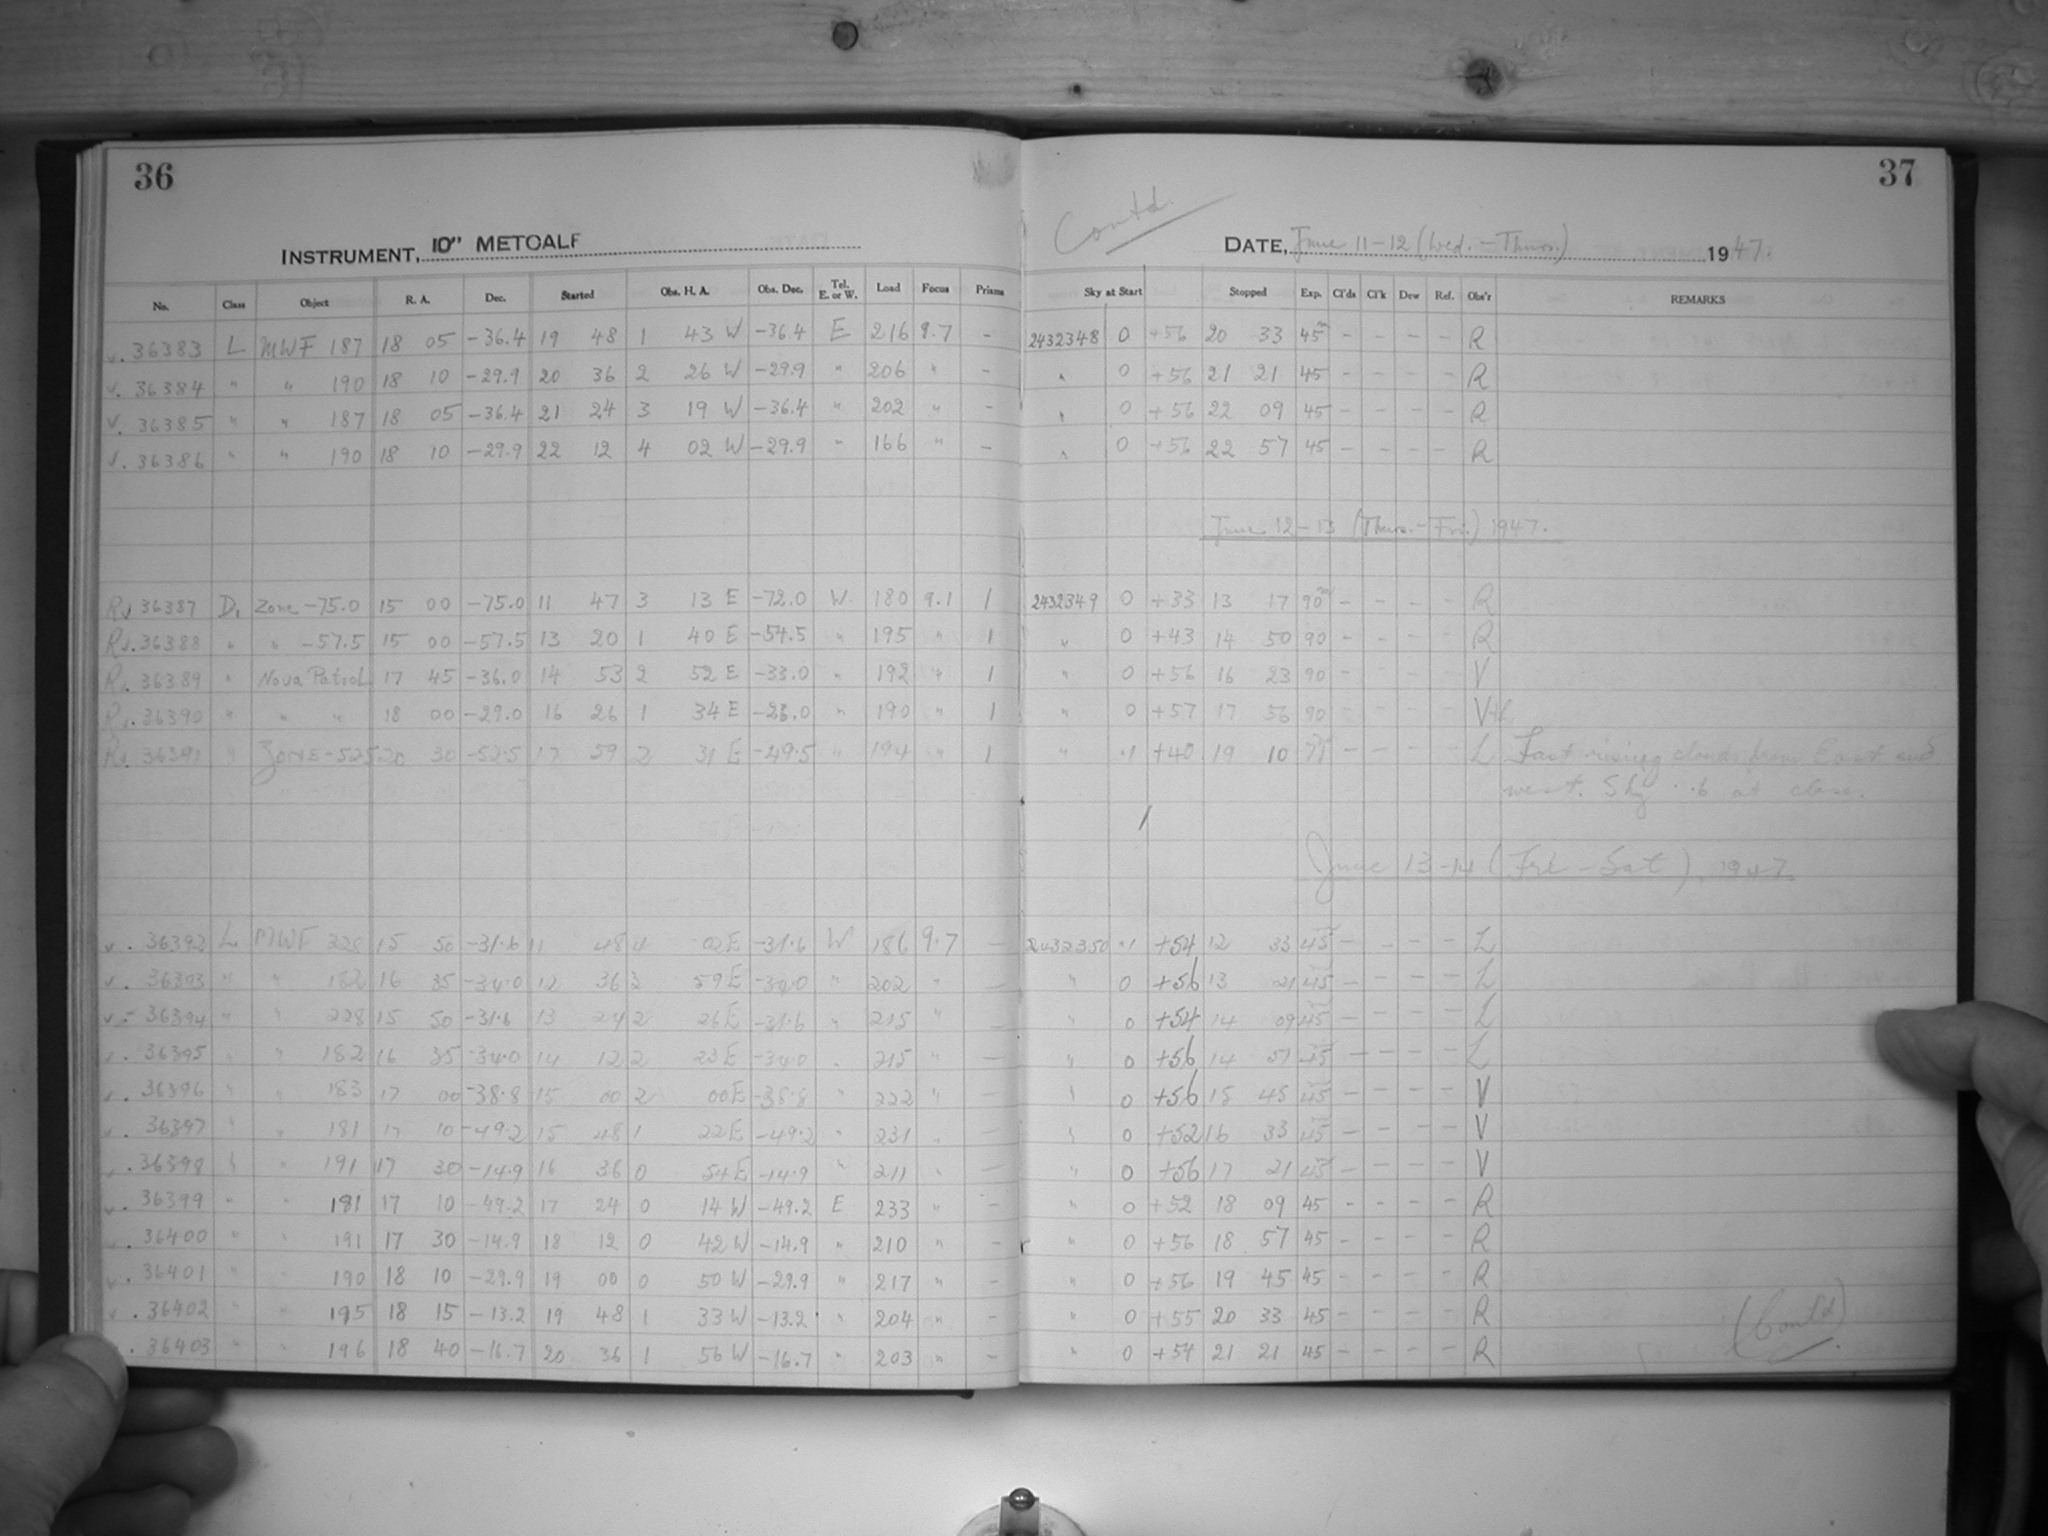 36
37
Contd.
INSTRUMENT, 10" METCALF
DATE, June 11-12 (Wed. - Thurs.) 1947.
No. Class Object R. A. Dec. Started Obs. H. A. Obs. Dec. Tel. E. or W. Load Focus Prisms Sky at Start Stopped Exp. Cl'ds Cl'k Dew Ref. Obs'r REMARKS
v. 36383 L MWF 187 18 05 -36.4 19 48 1 43 W -36.4 E 216 9.7 - 2432348 0 +56 20 33 45m - - - - R
v. 36384 " " 190 18 10 -29.9 20 36 2 26 W -29.9 " 206 " - " 0 +56 21 21 45 - - - - R
v. 36385 " " 187 18 05 -36.4 21 24 3 19 W -36.4 " 202 " - " 0 +56 22 09 45 - - - - R
v. 36386 " " 190 18 10 -29.9 22 12 4 02 W -29.9 " 166 " - " 0 +56 22 57 45 - - - - R
June 12-13 (Thurs. - Fri.) 1947.
Rv. 36387 D, Zone -75.0 15 00 -75.0 11 47 3 13 E -72.0 W. 180 9.1 1 2432349 0 +33 13 17 90m - - - - R
Rv. 36388 " " -57.5 15 00 -57.5 13 20 1 40 E -54.5 " 195 " 1 " 0 +43 14 50 90 - - - - R
Rv. 36389 " Nova Patrol 17 45 -36.0 14 53 2 52 E -33.0 " 192 " 1 " 0 +56 16 23 90 - - - - V
Rv. 36390 " " " 18 00 -29.0 16 26 1 34 E -26.0 " 190 " 1 " 0 +57 17 56 90 - - - - V
Rv. 36391 " Zone -52.5 20 30 -52.5 17 59 2 31 E -49.5 " 194 " 1 " .1 +40 19 10 71 - - - - L Fast rising clouds from East and
west. Sky .6 at close.
June 13-14 (Fri - Sat), 1947.
v. 36392 L MWF 228 15 50 -31.6 11 48 4 02 E -31.6 W 186 9.7 - 2432350 .1 +54 12 33 45 - - - - L
v. 36393 " " 182 16 35 -34.0 12 36 3 59 E -34.0 " 202 " - " 0 +56 13 21 45 - - - - L
v. 36394 " " 228 15 50 -31.6 13 24 2 26 E -31.6 " 215 " - " 0 +54 14 09 45 - - - - L
v. 36395 " " 182 16 35 -34.0 14 12 2 23 E -34.0 " 215 " - " 0 +56 14 57 45 - - - - L
v. 36396 " " 183 17 00 -38.8 15 00 2 00 E -38.8 " 222 " - " 0 +56 15 45 45 - - - - V
v. 36397 " " 181 17 10 -49.2 15 48 1 22 E -49.2 " 231 " - " 0 +52 16 33 45 - - - - V
v. 36398 " " 191 17 30 -14.9 16 36 0 54 E -14.9 " 211 " - " 0 +56 17 21 45 - - - - V
v. 36399 " " 181 17 10 -49.2 17 24 0 14 W -49.2 E 233 " - " 0 +52 18 09 45 - - - - R
v. 36400 " " 191 17 30 -14.9 18 12 0 42 W -14.9 " 210 " - " 0 +56 18 57 45 - - - - R
v. 36401 " " 190 18 10 -29.9 19 00 0 50 W -29.9 " 217 " - " 0 +56 19 45 45 - - - - R
v. 36402 " " 195 18 15 -13.2 19 48 1 33 W -13.2 " 204 " - " 0 +55 20 33 45 - - - - R
v. 36403 " " 196 18 40 -16.7 20 36 1 56 W -16.7 " 203 " - " 0 +54 21 21 45 - - - - R
(Contd)